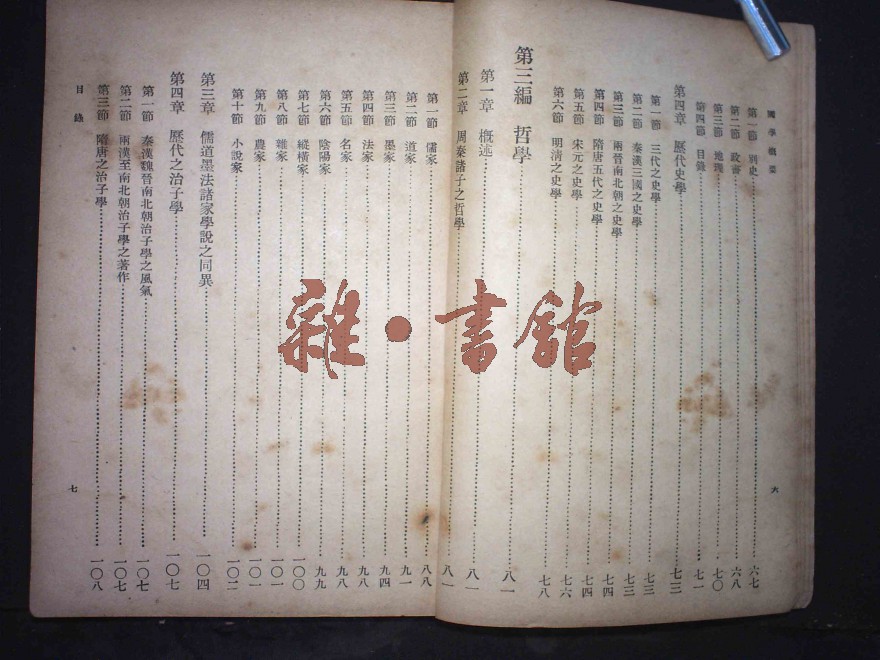 國學概要
第一節 別史 六七
第二節 政書 六八
第三節 地理 七〇
第四節 目錄 七一
第四章 歷代史學 七三
第一節 三代之史學 七三
第二節 秦漢三國之史學 七三
第三節 兩晉南北朝之史學 七四
第四節 隋唐五代之史學 七四
第五節 宋元之史學 七六
第六節 明清之史學 七八
第三編 哲學 八一
第一章 概述 八一
六
第二章 周秦諸子之哲學 八二
第一節 儒家 八八
第二節 道家 九一
第三節 墨家 九四
第四節 法家 九八
第五節 名家 九八
第六節 陰陽家 九九
第七節 縱橫家 一〇〇
第八節 雜家 一〇一
第九節 農家 一〇一
第十節 小說家 一〇二
第三章 儒道墨法諸家學說之同異 一〇四
第四章 歷代之治子學 一〇七
第一節 秦漢魏晉南北朝治子學之風氣 一〇七
第二節 兩漢至南北朝治子學之著作 一〇七
第三節 隋唐之治子學 一〇八
目錄
七
雜·書館